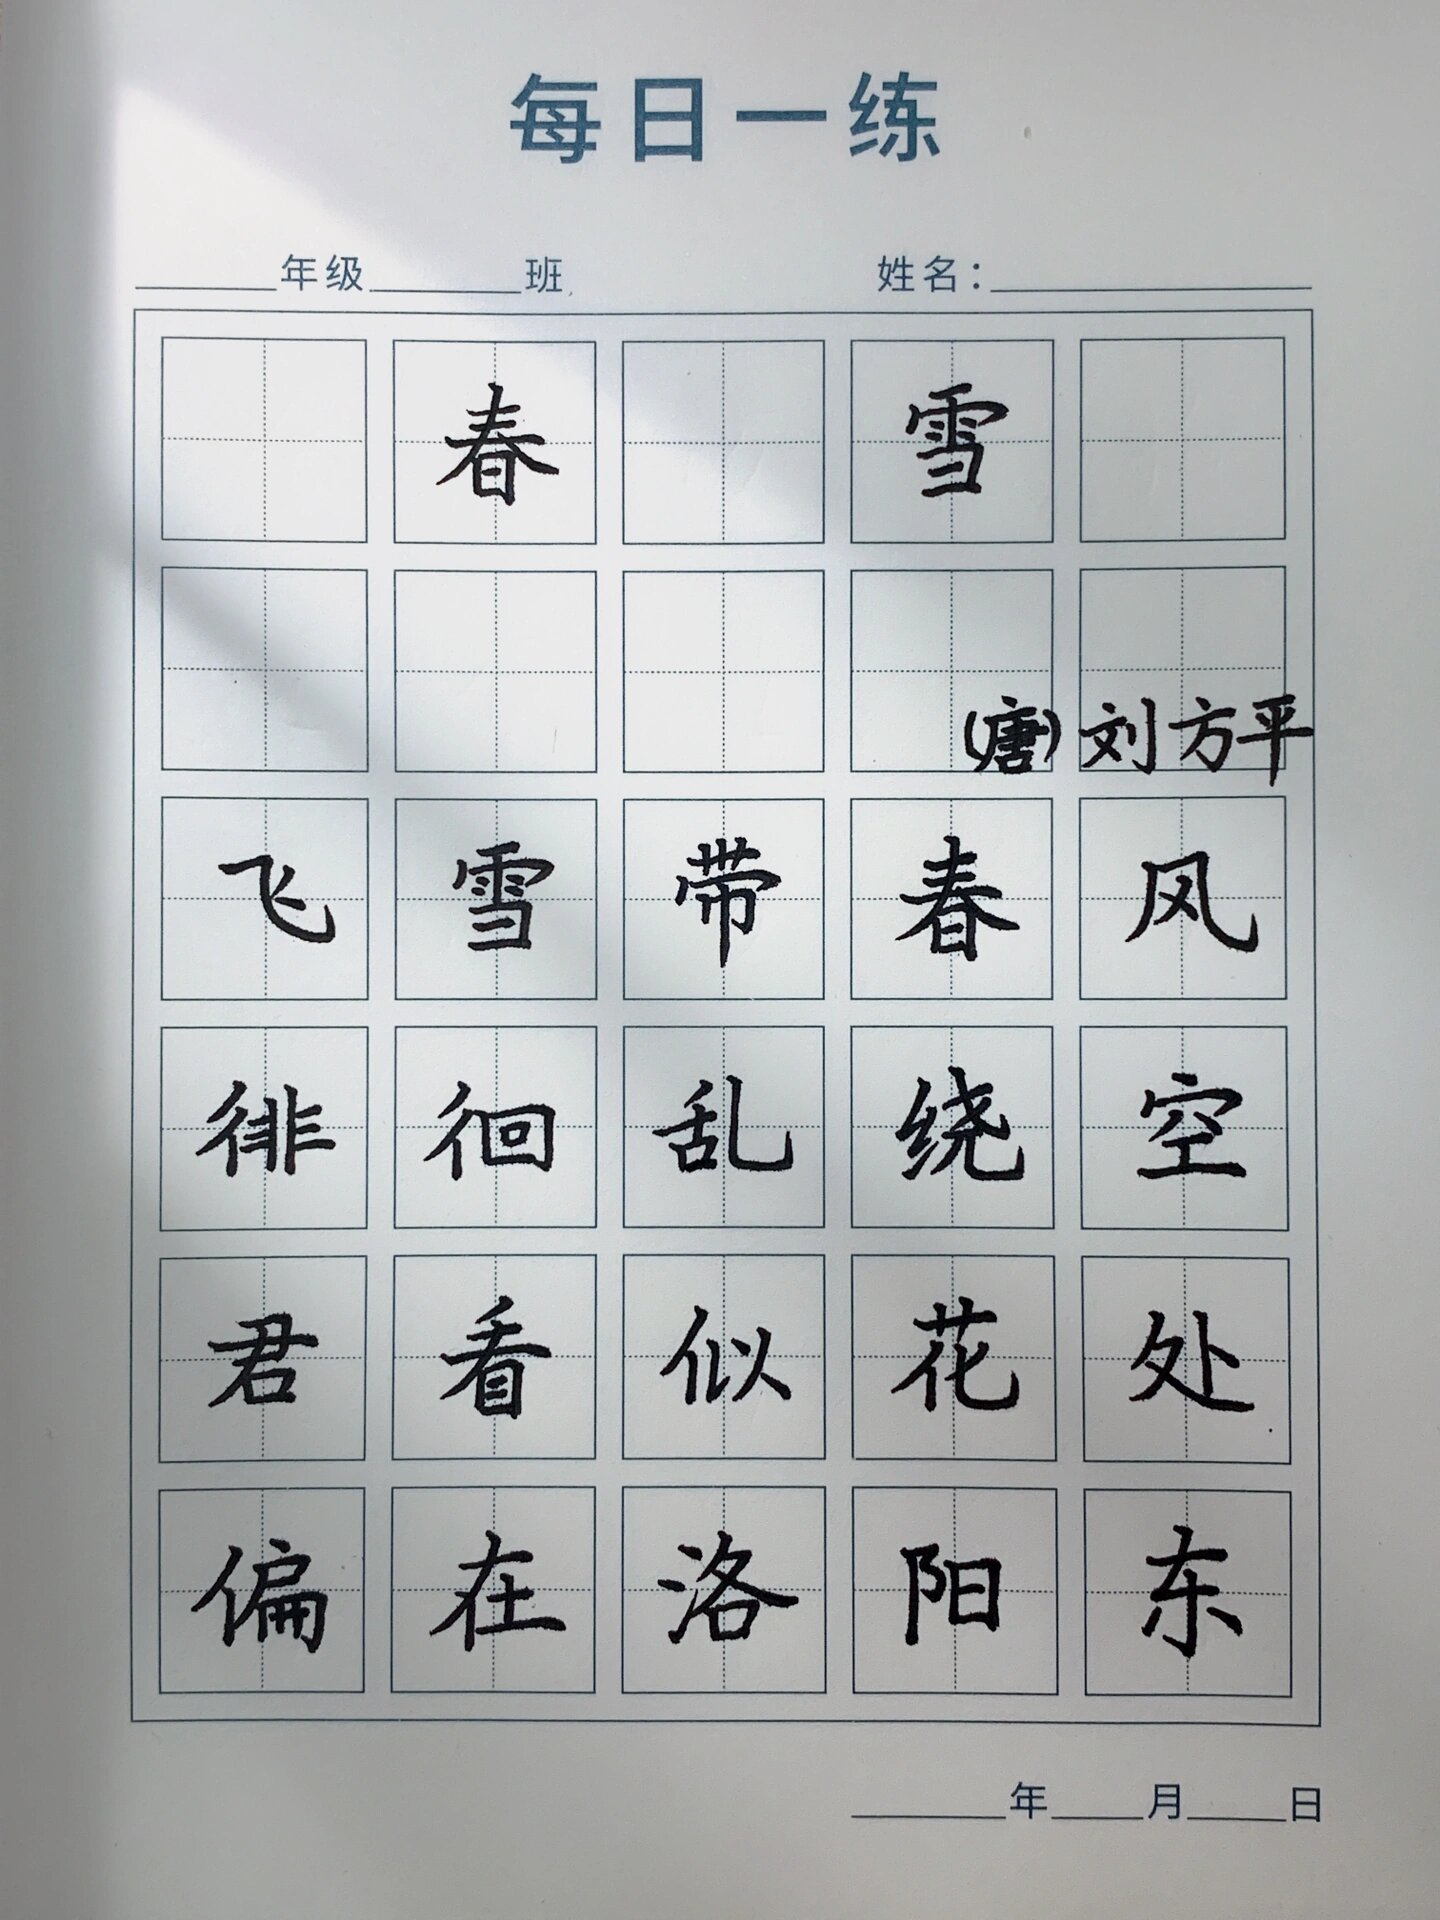 每日一练
____年级____班 姓名：________
春 雪
(唐) 刘方平
飞雪带春风
徘徊乱绕空
君看似花处
偏在洛阳东
____年____月____日